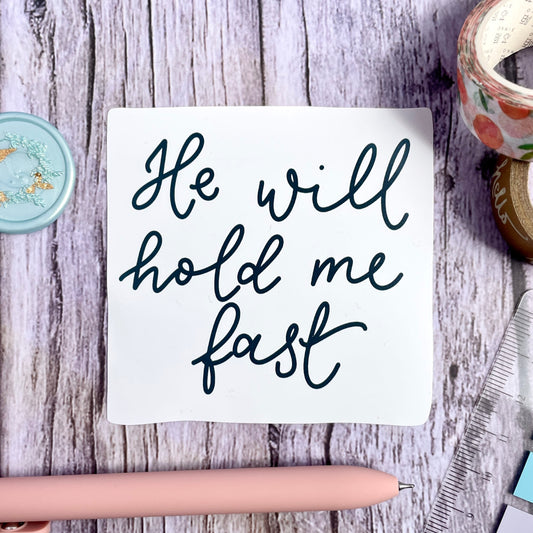 He will
hold me
fast
hello